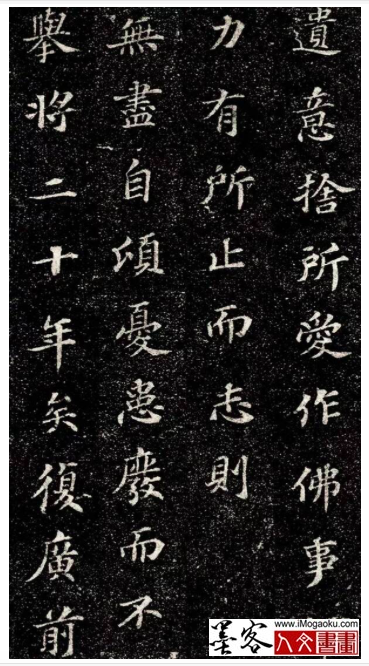 遺意捨所愛作佛事
力有所止而志則
無盡自頃憂患廢而不
舉將二十年矣復廣前
墨客
www.iMogaoku.com
人文書畫